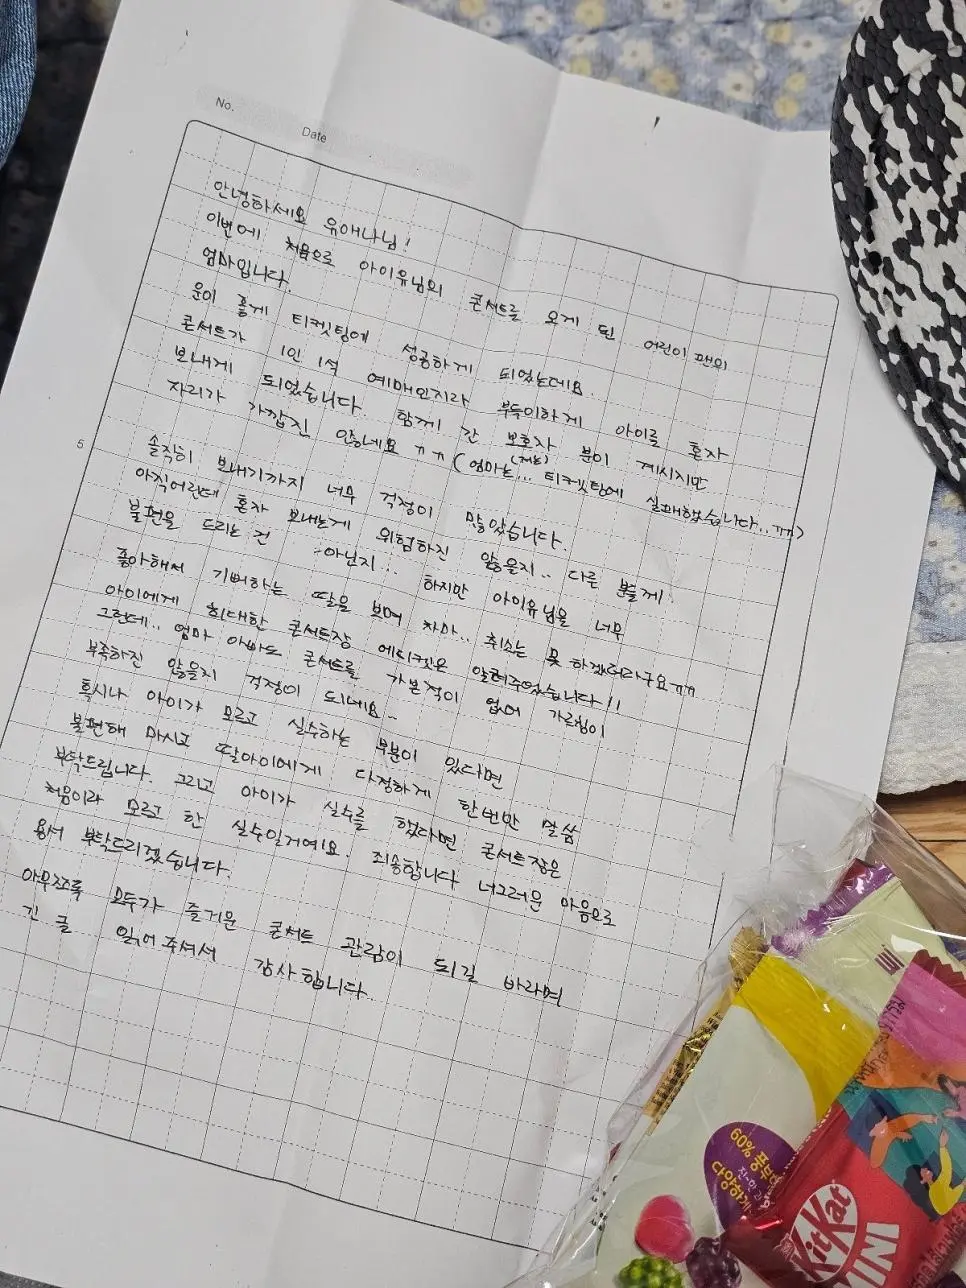 No.
Date
안녕하세요 유애나님!
이번에 처음으로 아이유님의 콘서트를 오게 된 어린이 팬의
엄마입니다
운이 좋게 티켓팅에 성공하게 되었는데요.
콘서트가 1인 1석 예매인지라 부득이하게 아이를 혼자
보내게 되었습니다. 함께 간 보호자 분이 계시지만
자리가 가깝진 않네요 ㅠㅠ (엄마는(저는)... 티켓팅에 실패했습니다..ㅠㅠ)
5
솔직히 보내기까지 너무 걱정이 많았습니다.
아직어린데 혼자 보내는게 위험하진 않을지.. 다른 분들께
불편을 드리는 건 아닌지.. 하지만 아이유님을 너무
좋아해서 기뻐하는 딸을 보며 차마.. 취소는 못 하겠더라구요ㅠㅠ
아이에게 최대한 콘서트장 에티켓은 알려주었습니다!!
그런데.. 엄마 아빠도 콘서트를 가본적이 없어 가르침이
부족하진 않을지 걱정이 되네요..
혹시나 아이가 모르고 실수하는 부분이 있다면
불편해 마시고 딸아이에게 다정하게 한번만 말씀
부탁드립니다. 그리고 아이가 실수를 했다면 콘서트장은
처음이라 모르고 한 실수일거예요. 죄송합니다 너그러운 마음으로
용서 부탁드리겠습니다.
아무쪼록 모두가 즐거운 콘서트 관람이 되길 바라며
긴 글 읽어주셔서 감사합니다.
60% 풍부
다양하게
KitKat
MINI